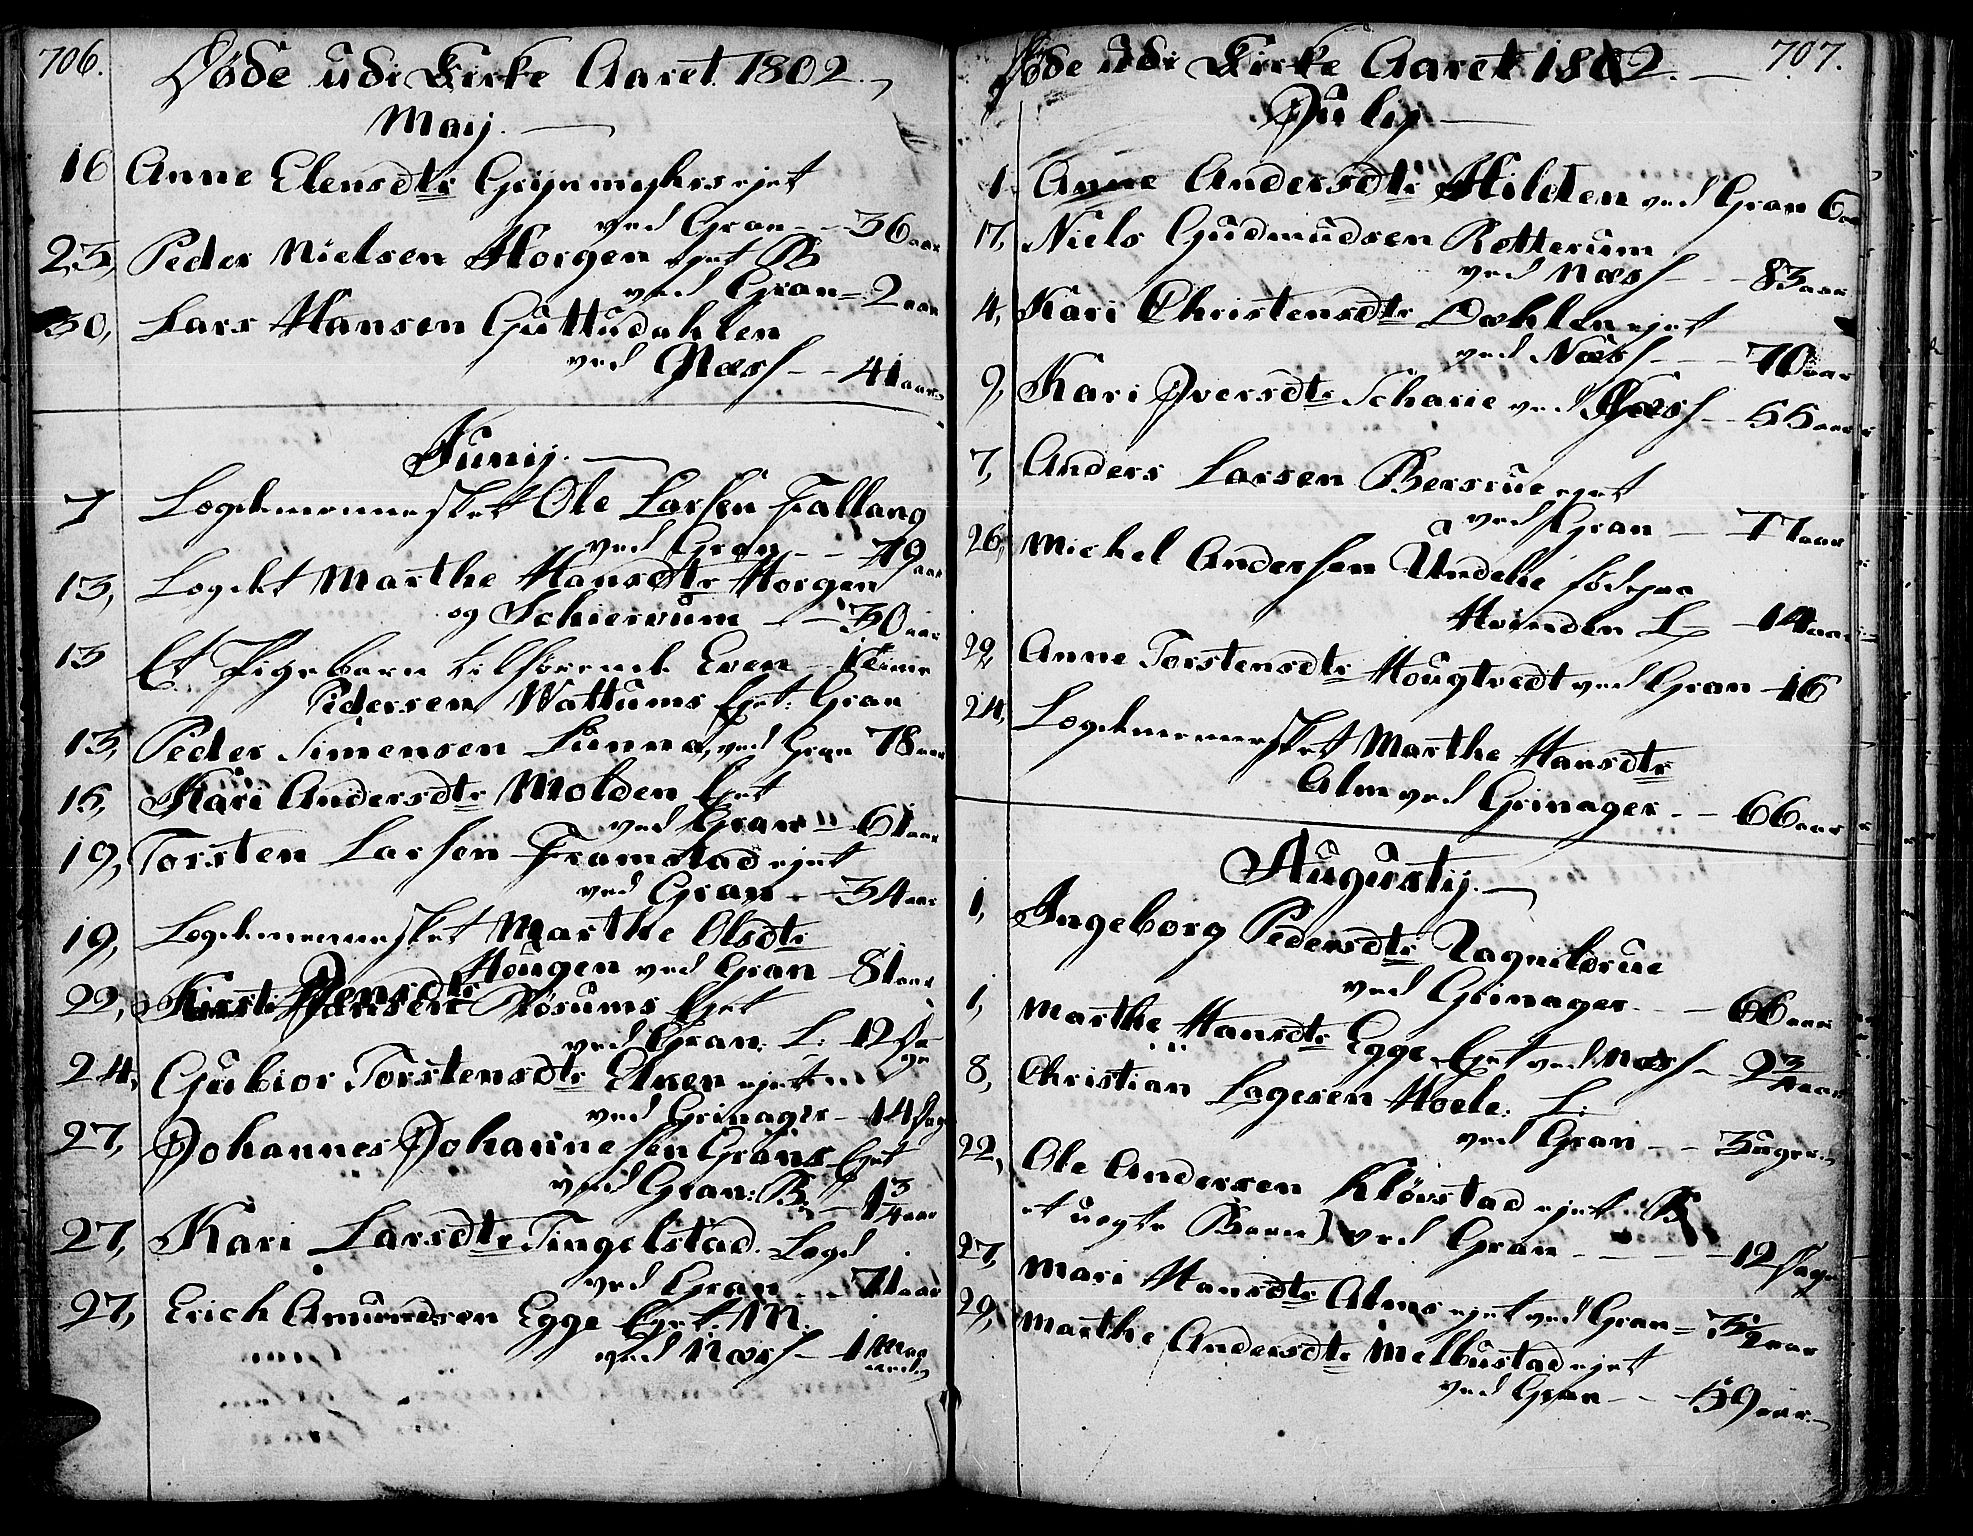 706.
Døde udi Kirke Aaret 1802.
Maij.
16 Anne Elensdtr ejet
ved Gran - 36 aar
23, Peder Nielsen Horgen ejet B
ved Gran = 2 aar
30, Lars Hansen Guttudahlen
ved Næss - - 41 aar
Junij.
7 Logdemennesket Ole Larsen Fallang
ved Gran - - 79 aar
13, Logdet Marthe Hansdtr Horgen
og Schierrum - - 30 aar
13 Et Pigebarn tilhørende Even - 1 Time
Pedersen Wattums Ejet: Gran
13, Peder Simensen Lunna, ved Gran 78 aar
15, Kari Andersdtr Molden Ejet
ved Gran - 61 aar
19, Torsten Larsen Framstad ejet
ved Gran - - 34 aar
19, Logdemennesket Marthe Olsdtr
Hougen ved Gran - 81 aar
22, Kirsti Jensdtr Røsums Ejet
ved Gran: L: 12 Dage
24, Gubior Torstensdtr Elnen ejet
ved Grinager - 14 Dage
27, Johannes Johannesen Grans Ejet
ved Gran: B - 1 3/4 aar
27, Kari Larsdtr Tingelstad. Logd
ved Gran - - 71 aar
27, Erich Amundsen Egge Ejet. M.
ved Næss - 1 Maaned
707.
Døde udi Kirke Aaret 1802.
Julij
1. Anne Andersdtr Hilden ved Gran 6 aar
17, Niels Gudmudsen Rotterum
ved Næss - - 83 aar
4, Kari Christensdtr Dæhlen ejet
ved Næss - - - 70 aar
9, Kari Iversdtr Scharie ved Næss - 55 aar
7, Anders Larsen Bersrue ejet
ved Gran - 77 aar
26, Michel Andersen Undelie født paa
Hvinden L - 14 aar
22, Anne Torstensdtr Hougtvedt ved Gran - 16
24, Logdemennesket Marthe Hansdtr
Alm ved Grinager - - 66 aar
Augustij.
1, Ingeborg Pedersdtr Ragnildrue
ved Grinager - - 66 aar
1, Marthe Hansdtr Egge Ejet ved Næss - 2 3/4 aar
8, Christian Lagesen Hoele: L:
ved Gran - - 3 uger
22, Ole Andersen Kløvstad ejet B
et uegte Barn) ved Gran - - - - 12 Dage
27, Mari Hansdtr Alms ejet ved Gran = 3 1/2 aar
29, Marthe Andersdtr Melbustad ejet
ved Gran - - 59 aar